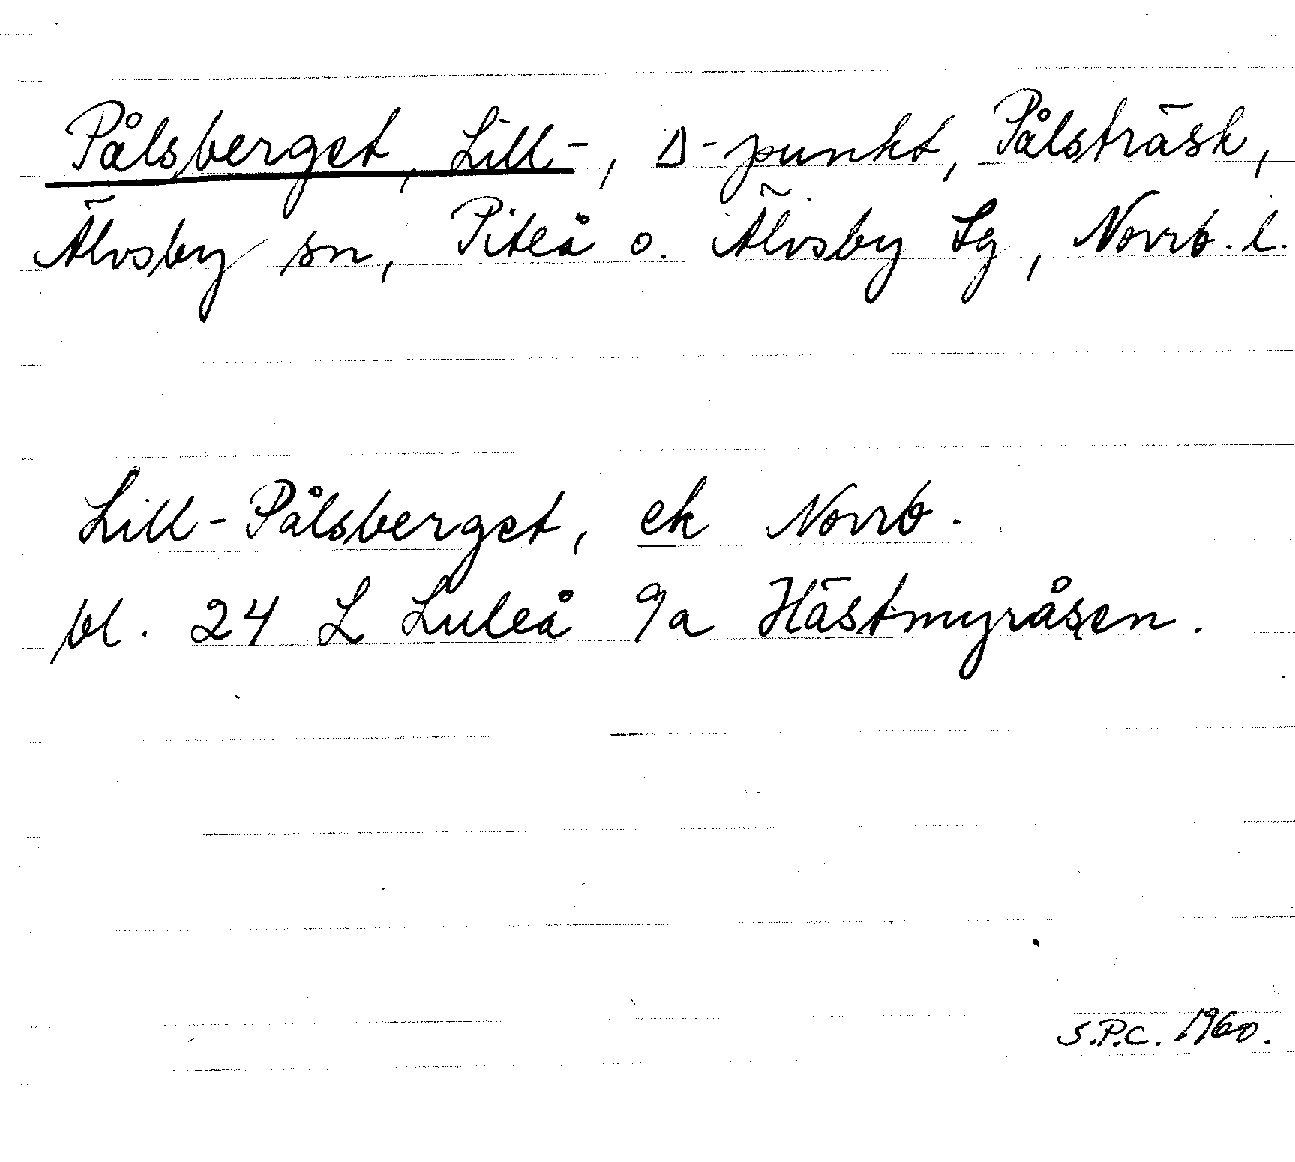 Pålsberget, Lill-, Δ-punkt, Pålsträsk,
Älvsby sn, Piteå o. Älvsby tg, Norrb. l.
Lill-Pålsberget, ek Norrb.
bl. 24 L Luleå 9a Hästmyråsen.
S.P.C. 1960.